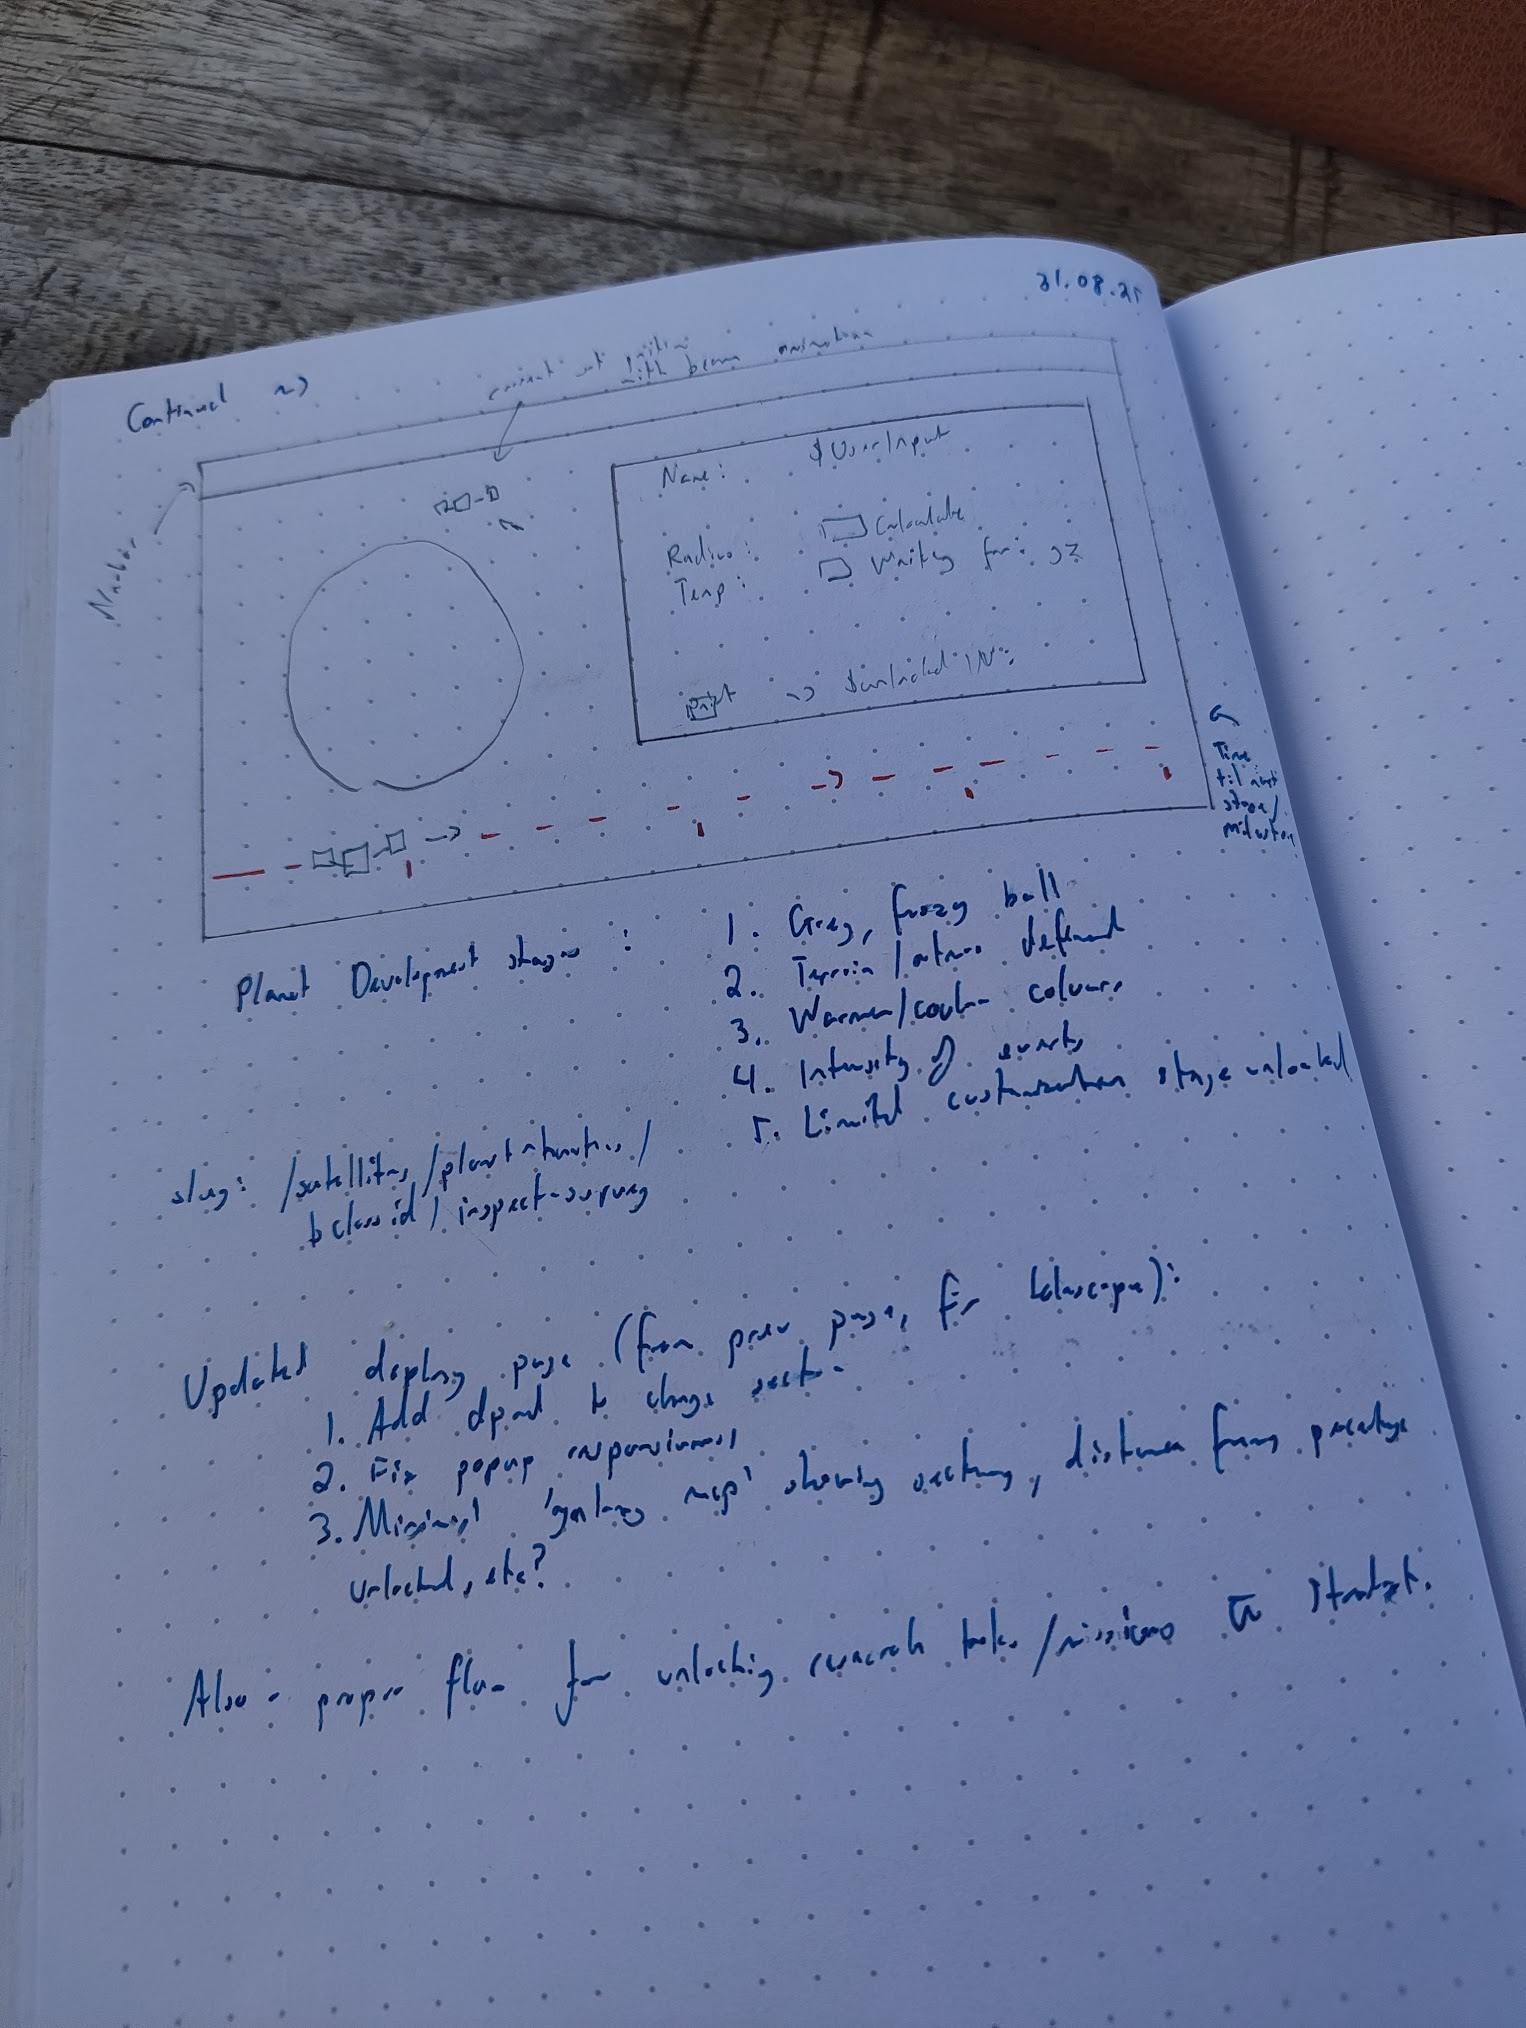 31.08.25
Continued ~>
with beam animation
Navbar
Name: $UserInput
Radius: Calculate
Temp: Waiting for:
~> $unlocked IN:
Time
til next
stage/
Planet Development stages :
1. Grey, fuzzy ball
2. Terrain/atmos defined
3. Warmer/cooler colours
4. Intensity of events
5. Limited customisation stage unlocked
slug: /satellites/planethunters/
classid/inspect-survey
Updated deploy page (from prev page, for telescope):
1. Add dpad to change sector
2. Fix popup responsiveness
3. Minimal 'galaxy map' showing sectors, distance from, percentage
unlocked, etc?
Also - proper flow for unlocking research tasks/missions